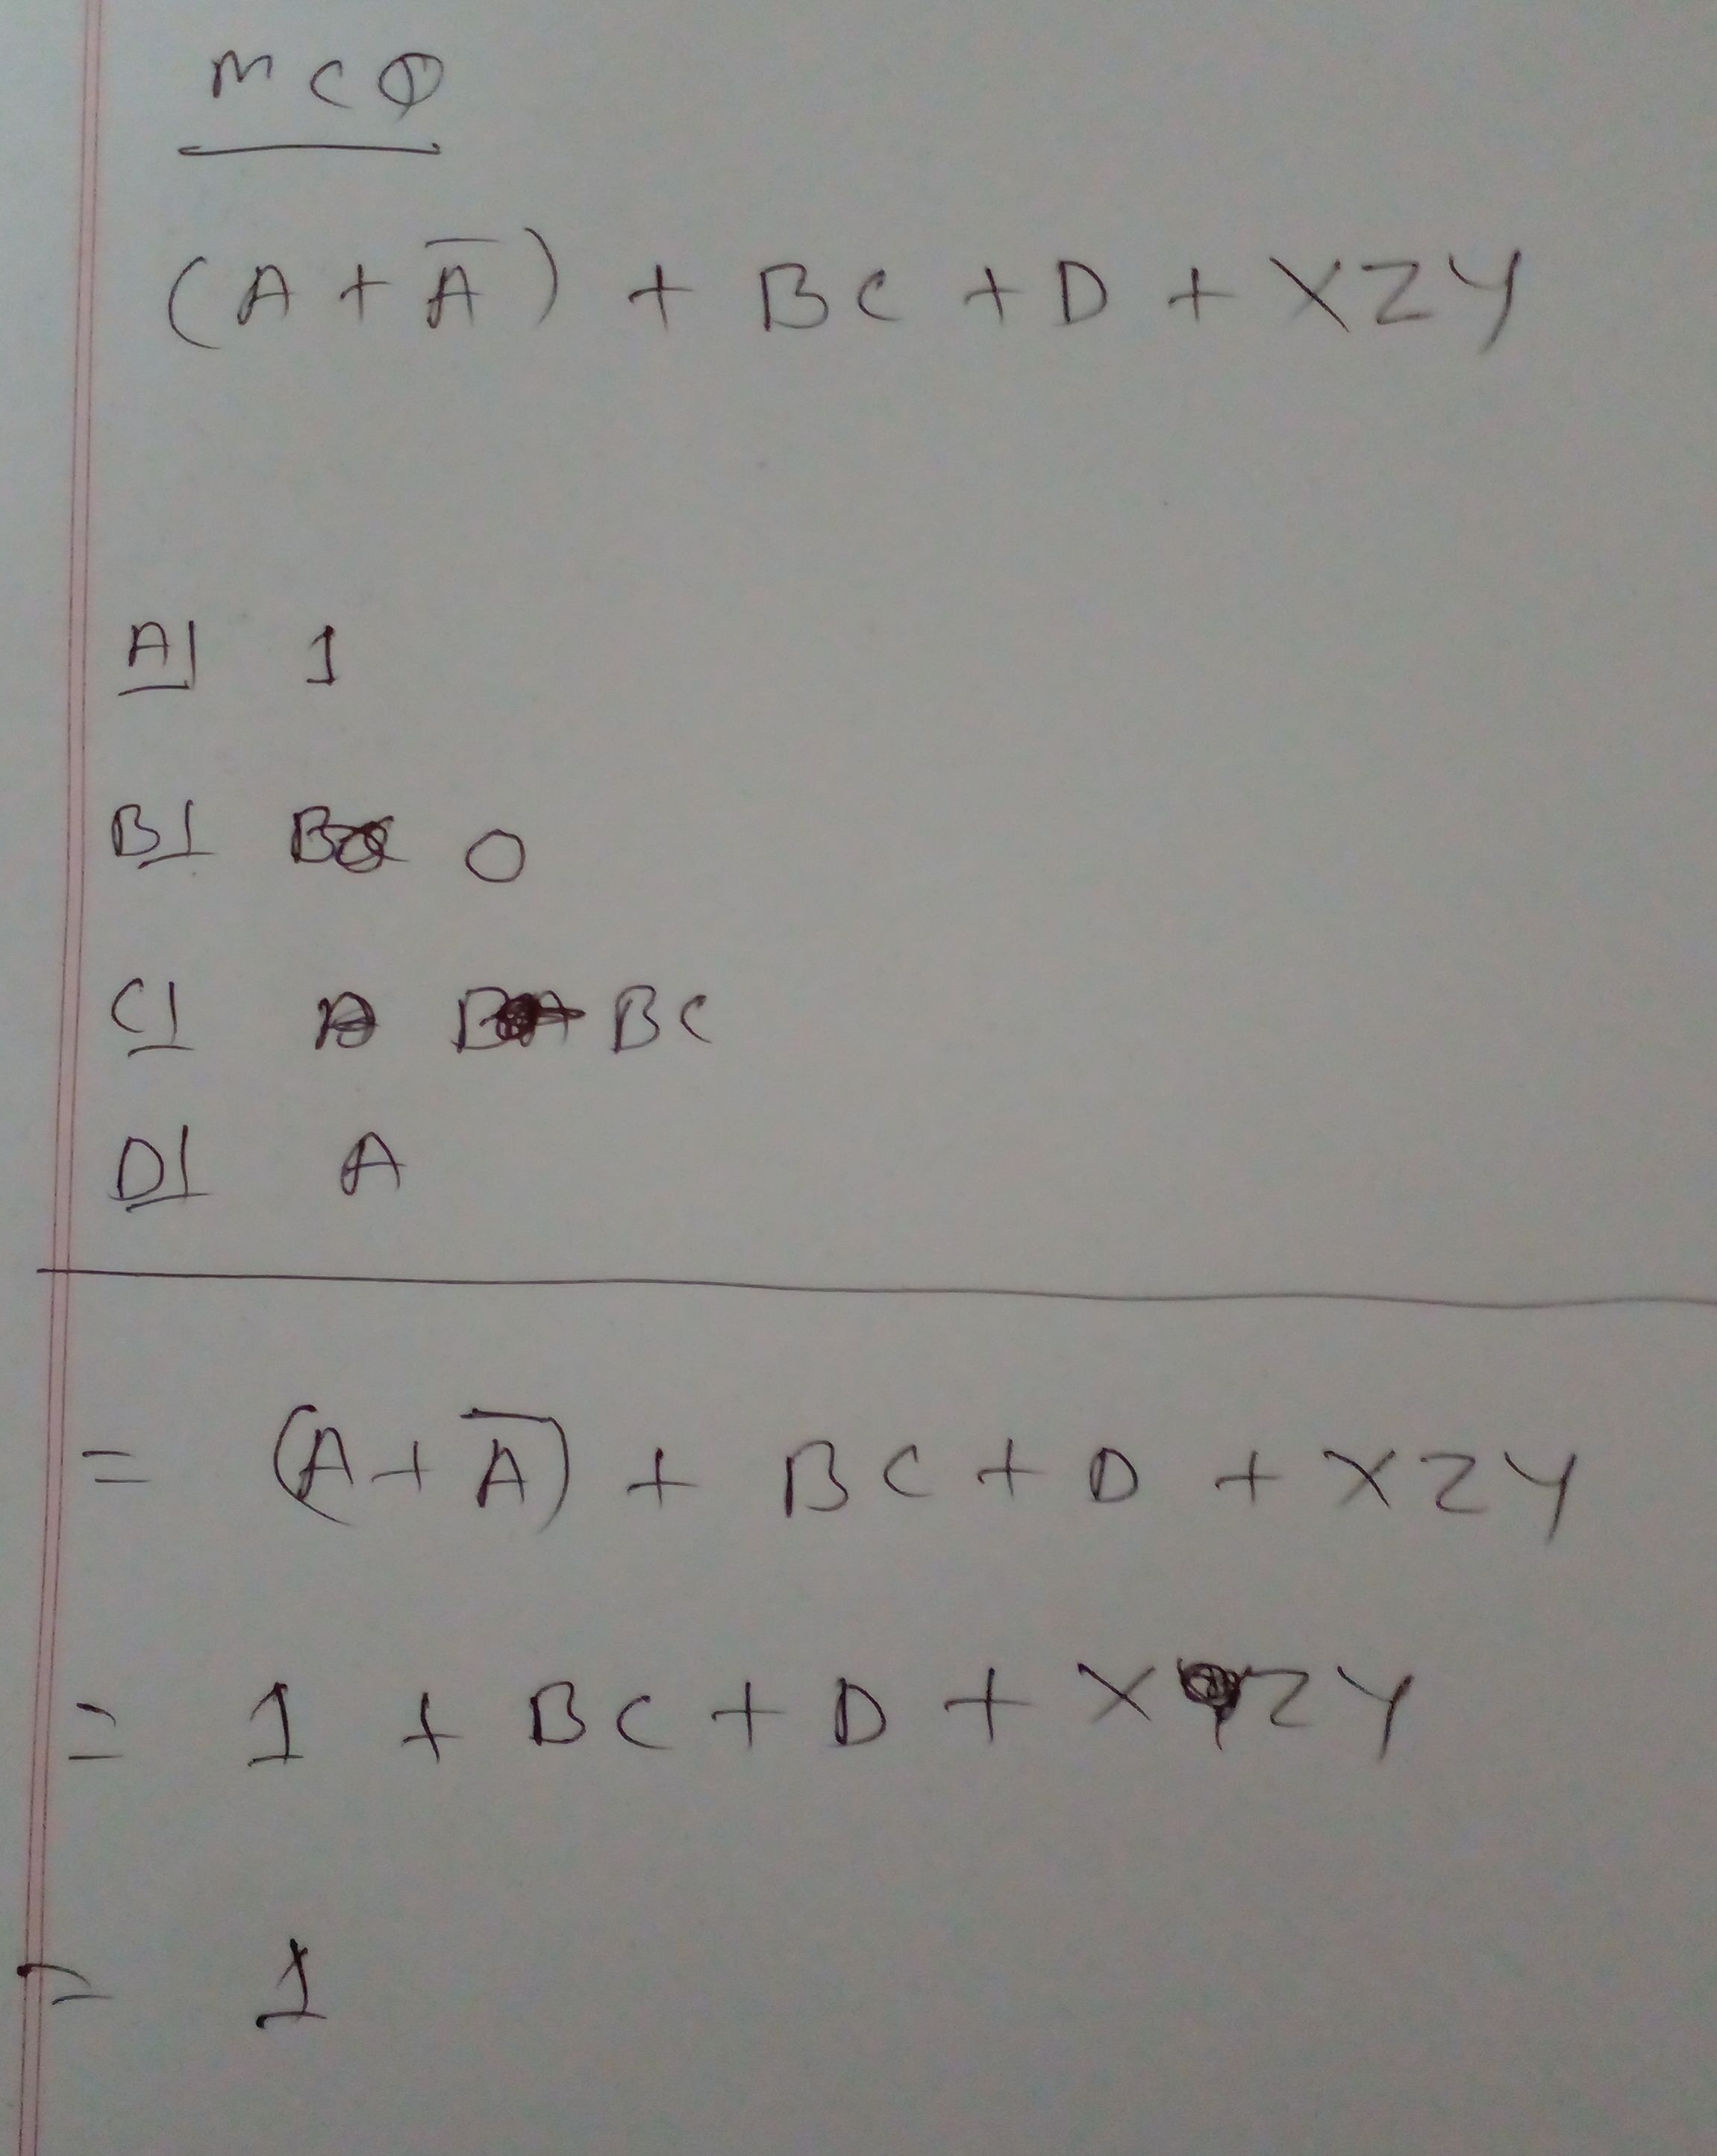 MCQ
(A + A̅) + BC + D + XZY
A| 1
B| 0
C| BC
D| A
= (A + A̅) + BC + D + XZY
= 1 + BC + D + XZY
= 1